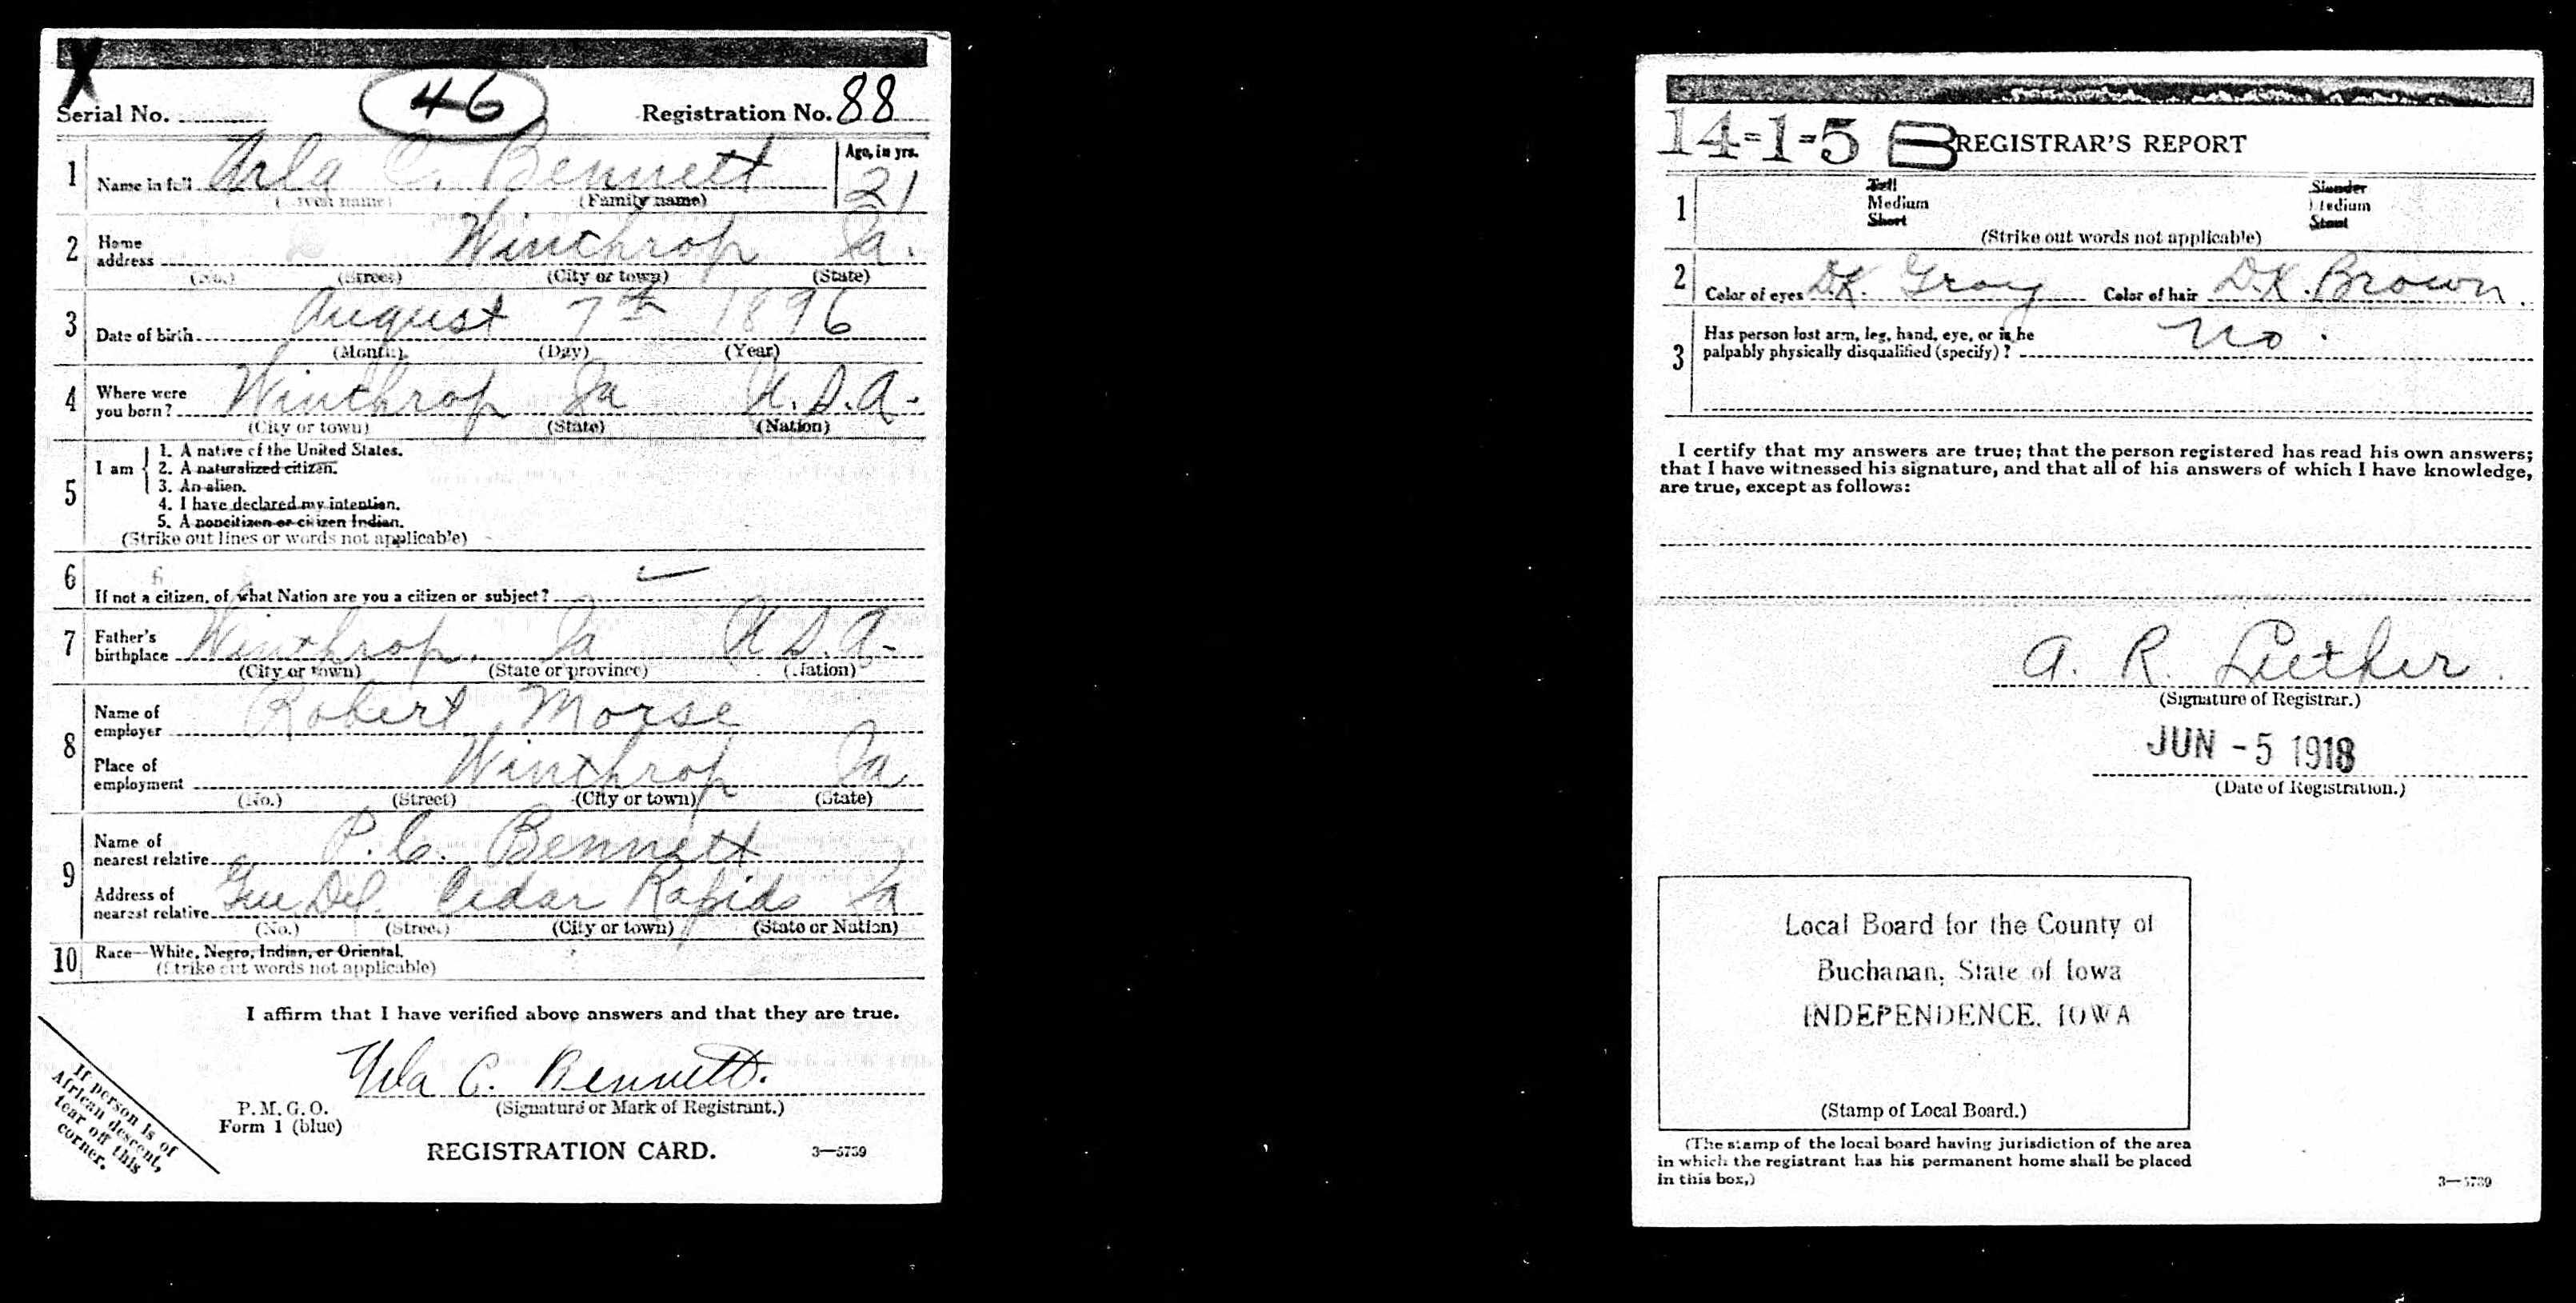 Serial No. 46 Registration No. 88
1 Name in full Arla C. Bennett Age, in yrs. 21
(Given name) (Family name)
2 Home address Winthrop Ia.
(No.) (Street) (City or town) (State)
3 Date of birth August 7th 1896
(Month) (Day) (Year)
4 Where were you born? Winthrop Ia U.S.A.
(City or town) (State) (Nation)
5 I am
1. A native of the United States.
2. A naturalized citizen.
3. An alien.
4. I have declared my intention.
5. A noncitizen or citizen Indian.
(Strike out lines or words not applicable)
6 If not a citizen, of what Nation are you a citizen or subject?
7 Father's birthplace Winthrop, Ia U.S.A.
(City or town) (State or province) (Nation)
8 Name of employer Robert Morse
Place of employment Winthrop Ia
(No.) (Street) (City or town) (State)
9 Name of nearest relative P. C. Bennett
Address of nearest relative Gen Del. Cedar Rapids Ia
(No.) (Street) (City or town) (State or Nation)
10 Race—White, Negro, Indian, or Oriental.
(Strike out words not applicable)
I affirm that I have verified above answers and that they are true.
Arla C. Bennett.
(Signature or Mark of Registrant.)
P. M. G. O.
Form 1 (blue)
REGISTRATION CARD. 3—5739
If person is of
African descent,
tear off this
corner.
14-1-5 B REGISTRAR'S REPORT
1 Tall Slender
Medium Medium
Short Stout
(Strike out words not applicable)
2 Color of eyes DK. Gray Color of hair DK. Brown.
3 Has person lost arm, leg, hand, eye, or is he
palpably physically disqualified (specify)? No.
I certify that my answers are true; that the person registered has read his own answers;
that I have witnessed his signature, and that all of his answers of which I have knowledge,
are true, except as follows:
A. R. Luther.
(Signature of Registrar.)
JUN -5 1918
(Date of Registration.)
Local Board for the County of
Buchanan, State of Iowa
INDEPENDENCE, IOWA
(Stamp of Local Board.)
(The stamp of the local board having jurisdiction of the area
in which the registrant has his permanent home shall be placed
in this box.)
3—5739